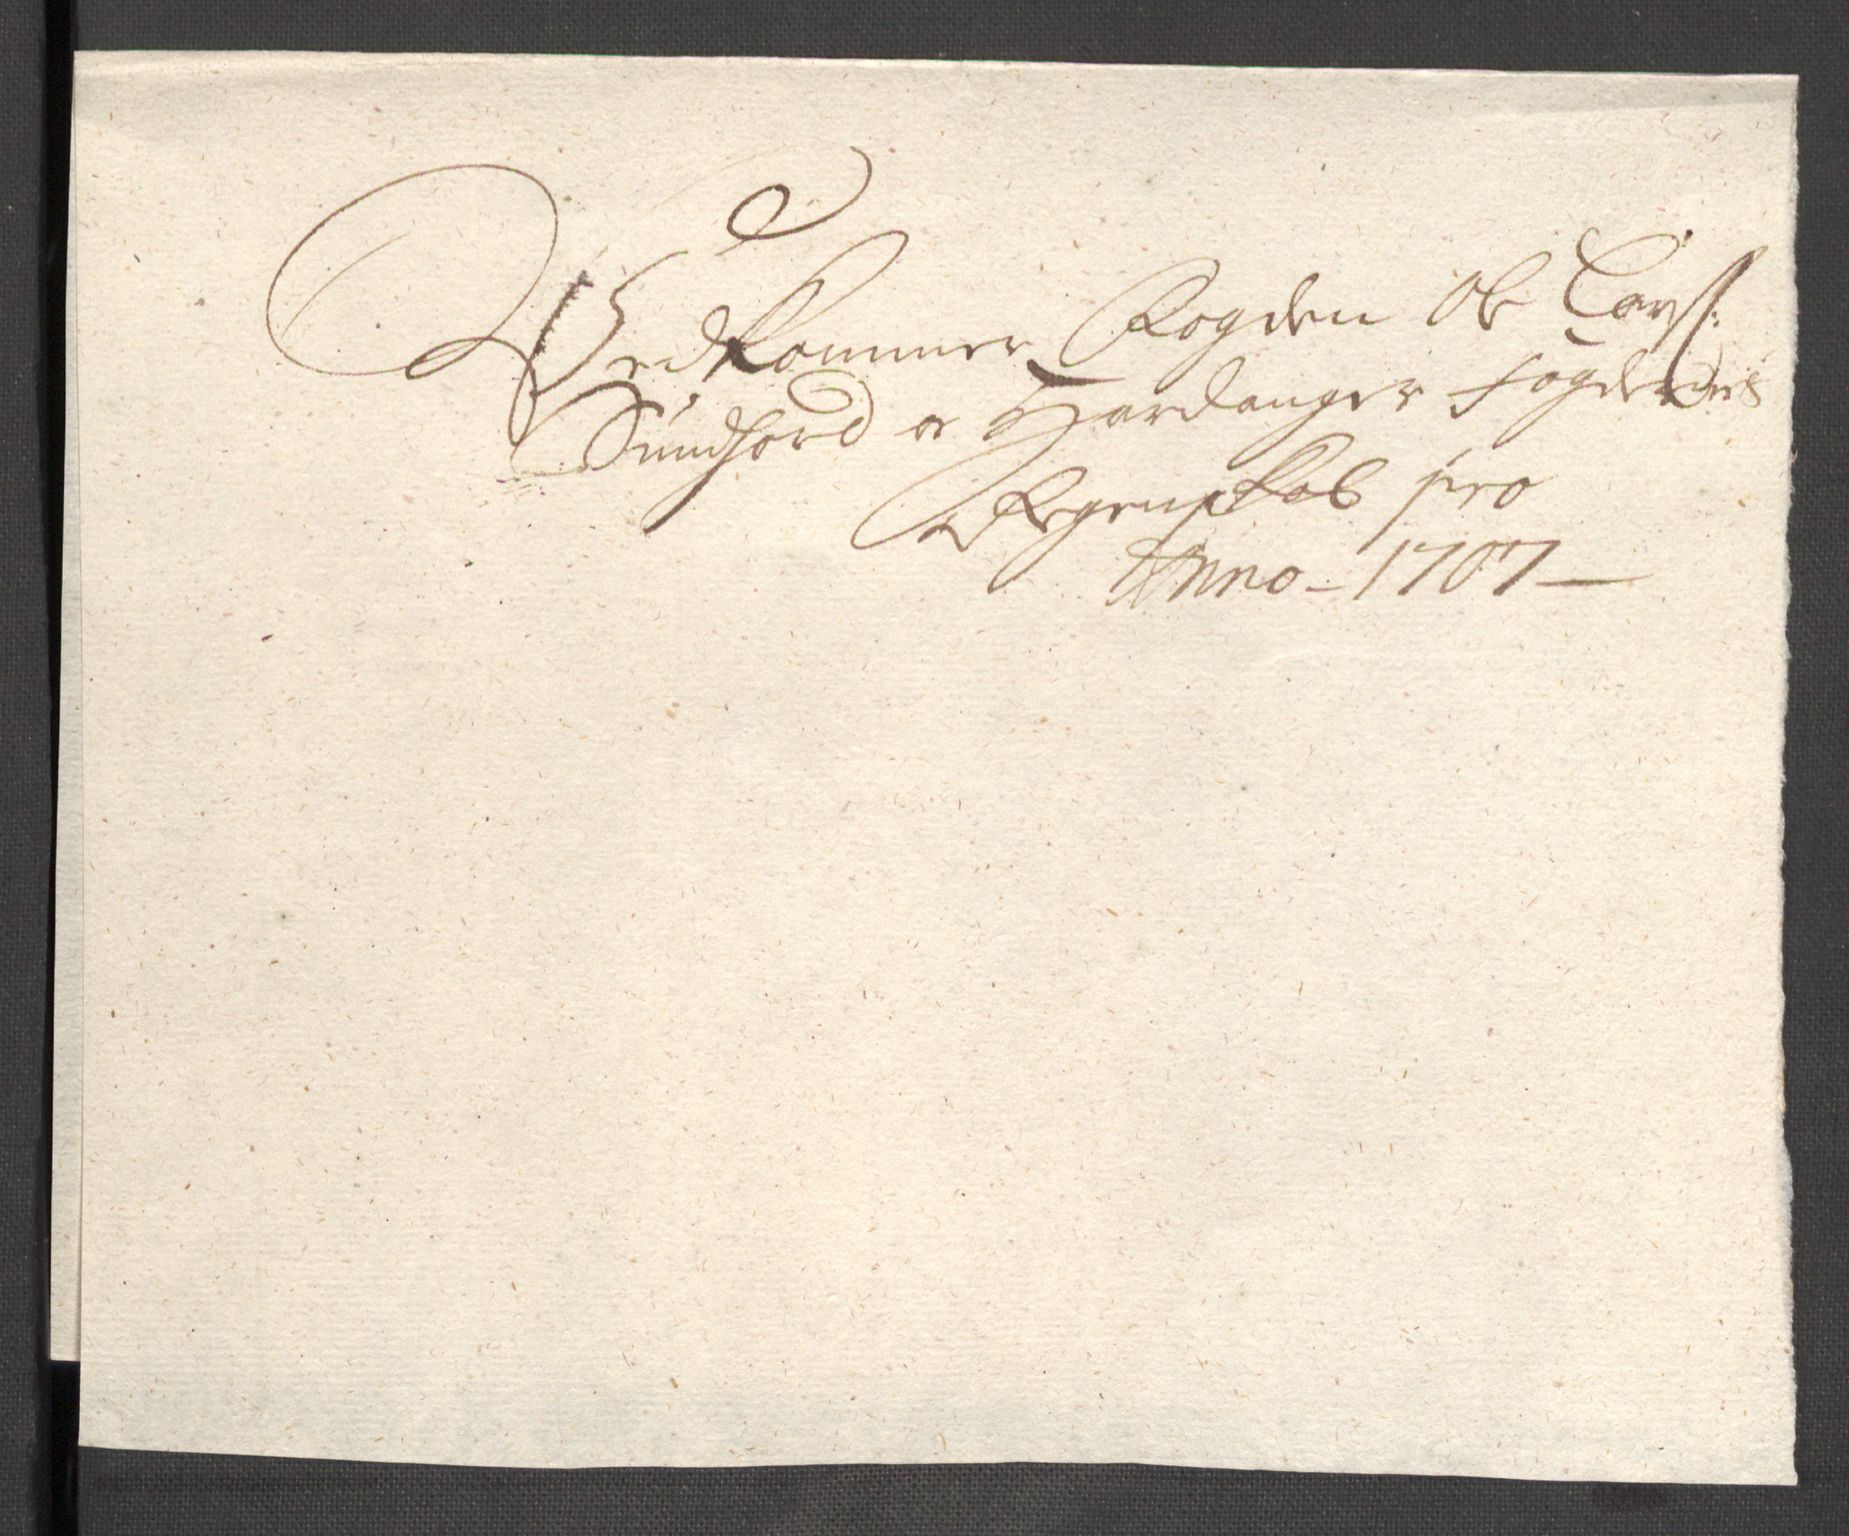 Vedkommer Fogden Ol Larss:
Sundhord o Hardanger Fogderies
Regenskab pro
Anno - 1707 -